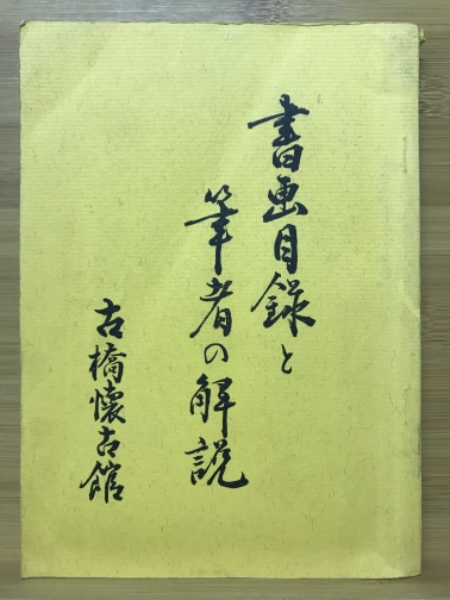 書画目録と
筆者の解説
古橋懐古館